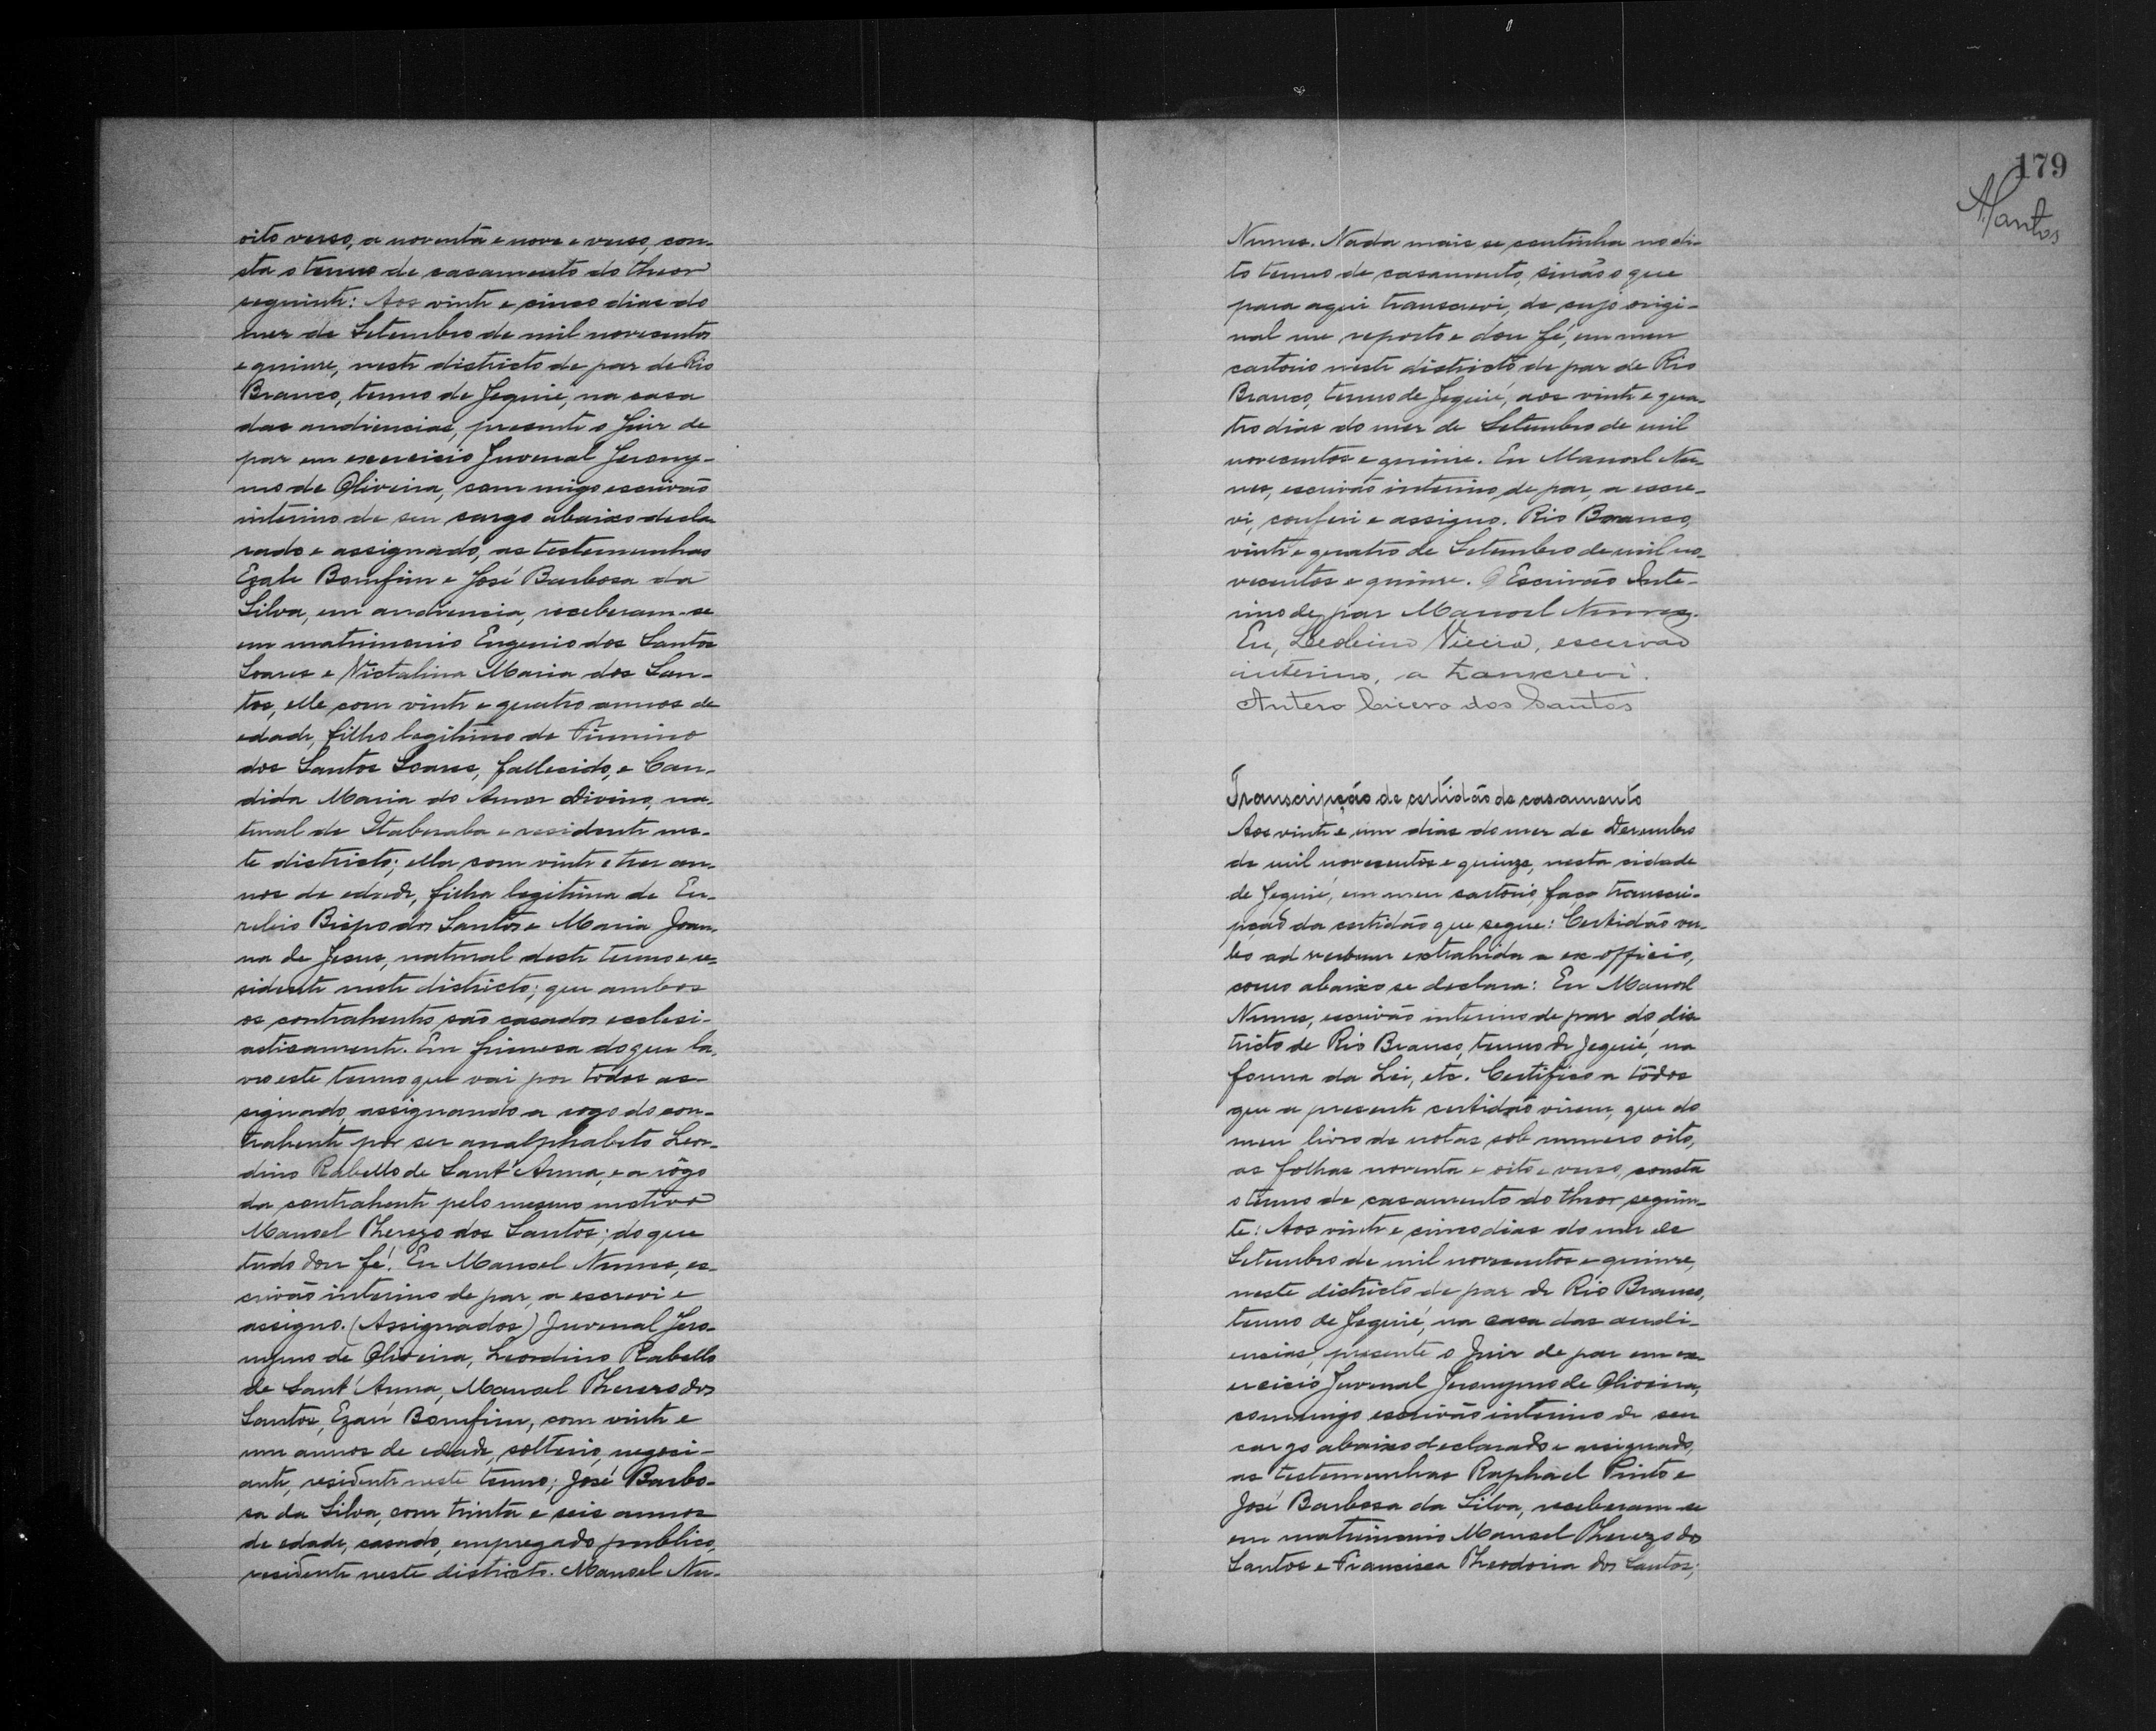 oito verso, a noventa e nove e verso, con-
sta o termo de casamento do theor
seguinte: Aos vinte e cinco dias do
mez de Setembro de mil novecentos
e quinze, neste districto de paz de Rio
Branco, termo de Jequié, na casa
das audiencias, presente o Juiz de
paz em exercicio Juvenal Jerony-
mo de Oliveira, commigo escrivão
interino de seu cargo abaixo decla-
rado e assignado, as testemunhas
Bomfim e José Barbosa da
Silva, em audiencia, receberam-se
em matrimonio Eugenio dos Santos
Soares e Victalina Maria dos San-
tos, elle com vinte e quatro annos de
edade, filho legitimo de Firmino
dos Santos Soares, fallecido, e Can-
dida Maria do Amor Divino, na-
tural de Itaberaba e residente nes-
te districto; ella, com vinte e tres an-
nos de edade, filha legitima de Eu-
zebio Bispo dos Santos e Maria Joan-
na de Jesus, natural deste termo e re-
sidente neste districto; que ambos
os contrahentes são casados ecclesi-
asticamente. Em firmesa do que la-
vro este termo que vai por todos as-
signado, assignando a rogo do con-
trahente por ser analphabeto Leor-
dino Rabello de Sant'Anna, e a rôgo
da contrahente pelo mesmo motivo
Manoel Therezo dos Santos; do que
tudo dou fé. Eu Manoel Nunes, es-
crivão interino de paz, a escrevi e
assigno. (Assignados) Juvenal Jero-
nymo de Oliveira, Leordino Rabello
de Sant'Anna, Manoel Therezo dos
Santos, Ezaú Bomfim, com vinte e
um annos de edade, solteiro, negoci-
ante, residente neste termo; José Barbo-
sa da Silva, com trinta e seis annos
de edade, casado, empregado publico,
residente neste districto. Manoel Nu-
179
ASantos
Nunes. Nada mais se continha no di-
to termo de casamento, sinão o que
para aqui transcrevi, de cujo origi-
nal me reporto e dou fé, em meu
cartorio neste districto de paz de Rio
Branco, termo de Jequié, aos vinte e qua-
tro dias do mez de Setembro de mil
novecentos e quinze. Eu Manoel Nu-
nes, escrivão interino, de paz, a escre-
vi, conferi e assigno. Rio Branco,
vinte e quatro de Setembro de mil no-
vecentos e quinze. O Escrivão Inte-
rino de paz Manoel Nunes.
Eu, Vieira, escrivão
interino, a transcrevi.
Antero Cicero dos Santos
Transcripção de certidão de casamento
Aos vinte e um dias do mez de Dezembro
de mil novecentos e quinze, nesta cidade
de Jequié, em meu cartorio, faço transcri-
pção da certidão que segue: Certidão ver-
bo ad verbum extrahida a ex-officio,
como abaixo se declara: Eu Manoel
Nunes, escrivão interino de paz do dis-
tricto de Rio Branco, termo de Jequié, na
forma da Lei, etc. Certifico a tôdos
que a presente certidão virem, que do
meu livro de notas sob numero oito,
as folhas noventa e oito e verso, consta
o termo de casamento do theor seguin-
te: Aos vinte e cinco dias do mez de
Setembro de mil novecentos e quinze,
neste districto de paz de Rio Branco,
termo de Jequié, na casa das audi-
encias, presente o Juiz de paz em ex-
ercicio Juvenal Jeronymo de Oliveira,
commigo escrivão interino de seu
cargo abaixo declarado e assignado,
as testemunhas Raphael Pinto e
José Barbosa da Silva, receberam-se
em matrimonio Manoel Therezo dos
Santos e Francisca Theodoria dos Santos;